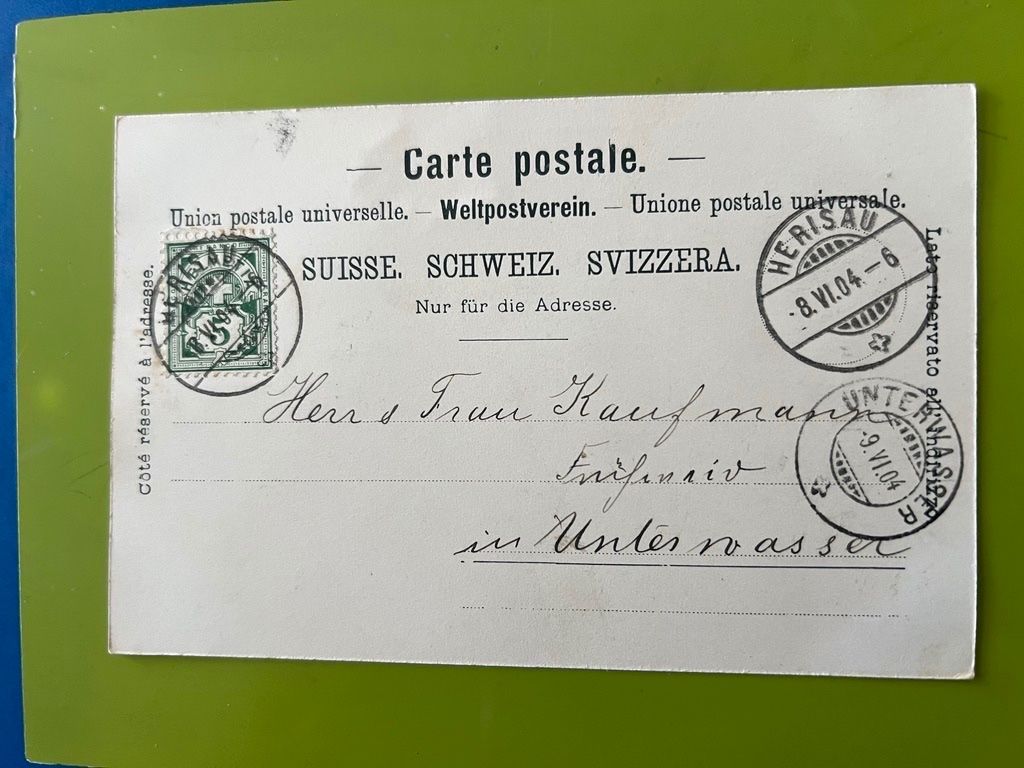 — Carte postale. —
Union postale universelle. — Weltpostverein. — Unione postale universale.
SUISSE. SCHWEIZ. SVIZZERA.
Nur für die Adresse.
Côté réservé à l'adresse.
Lato riservato all'indirizzo
HERISAU
8.VI.04
5
HERISAU
-8.VI.04-6
UNTERWASSER
-9.VI.04
Herr & Frau Kaufmann
in Unterwasser